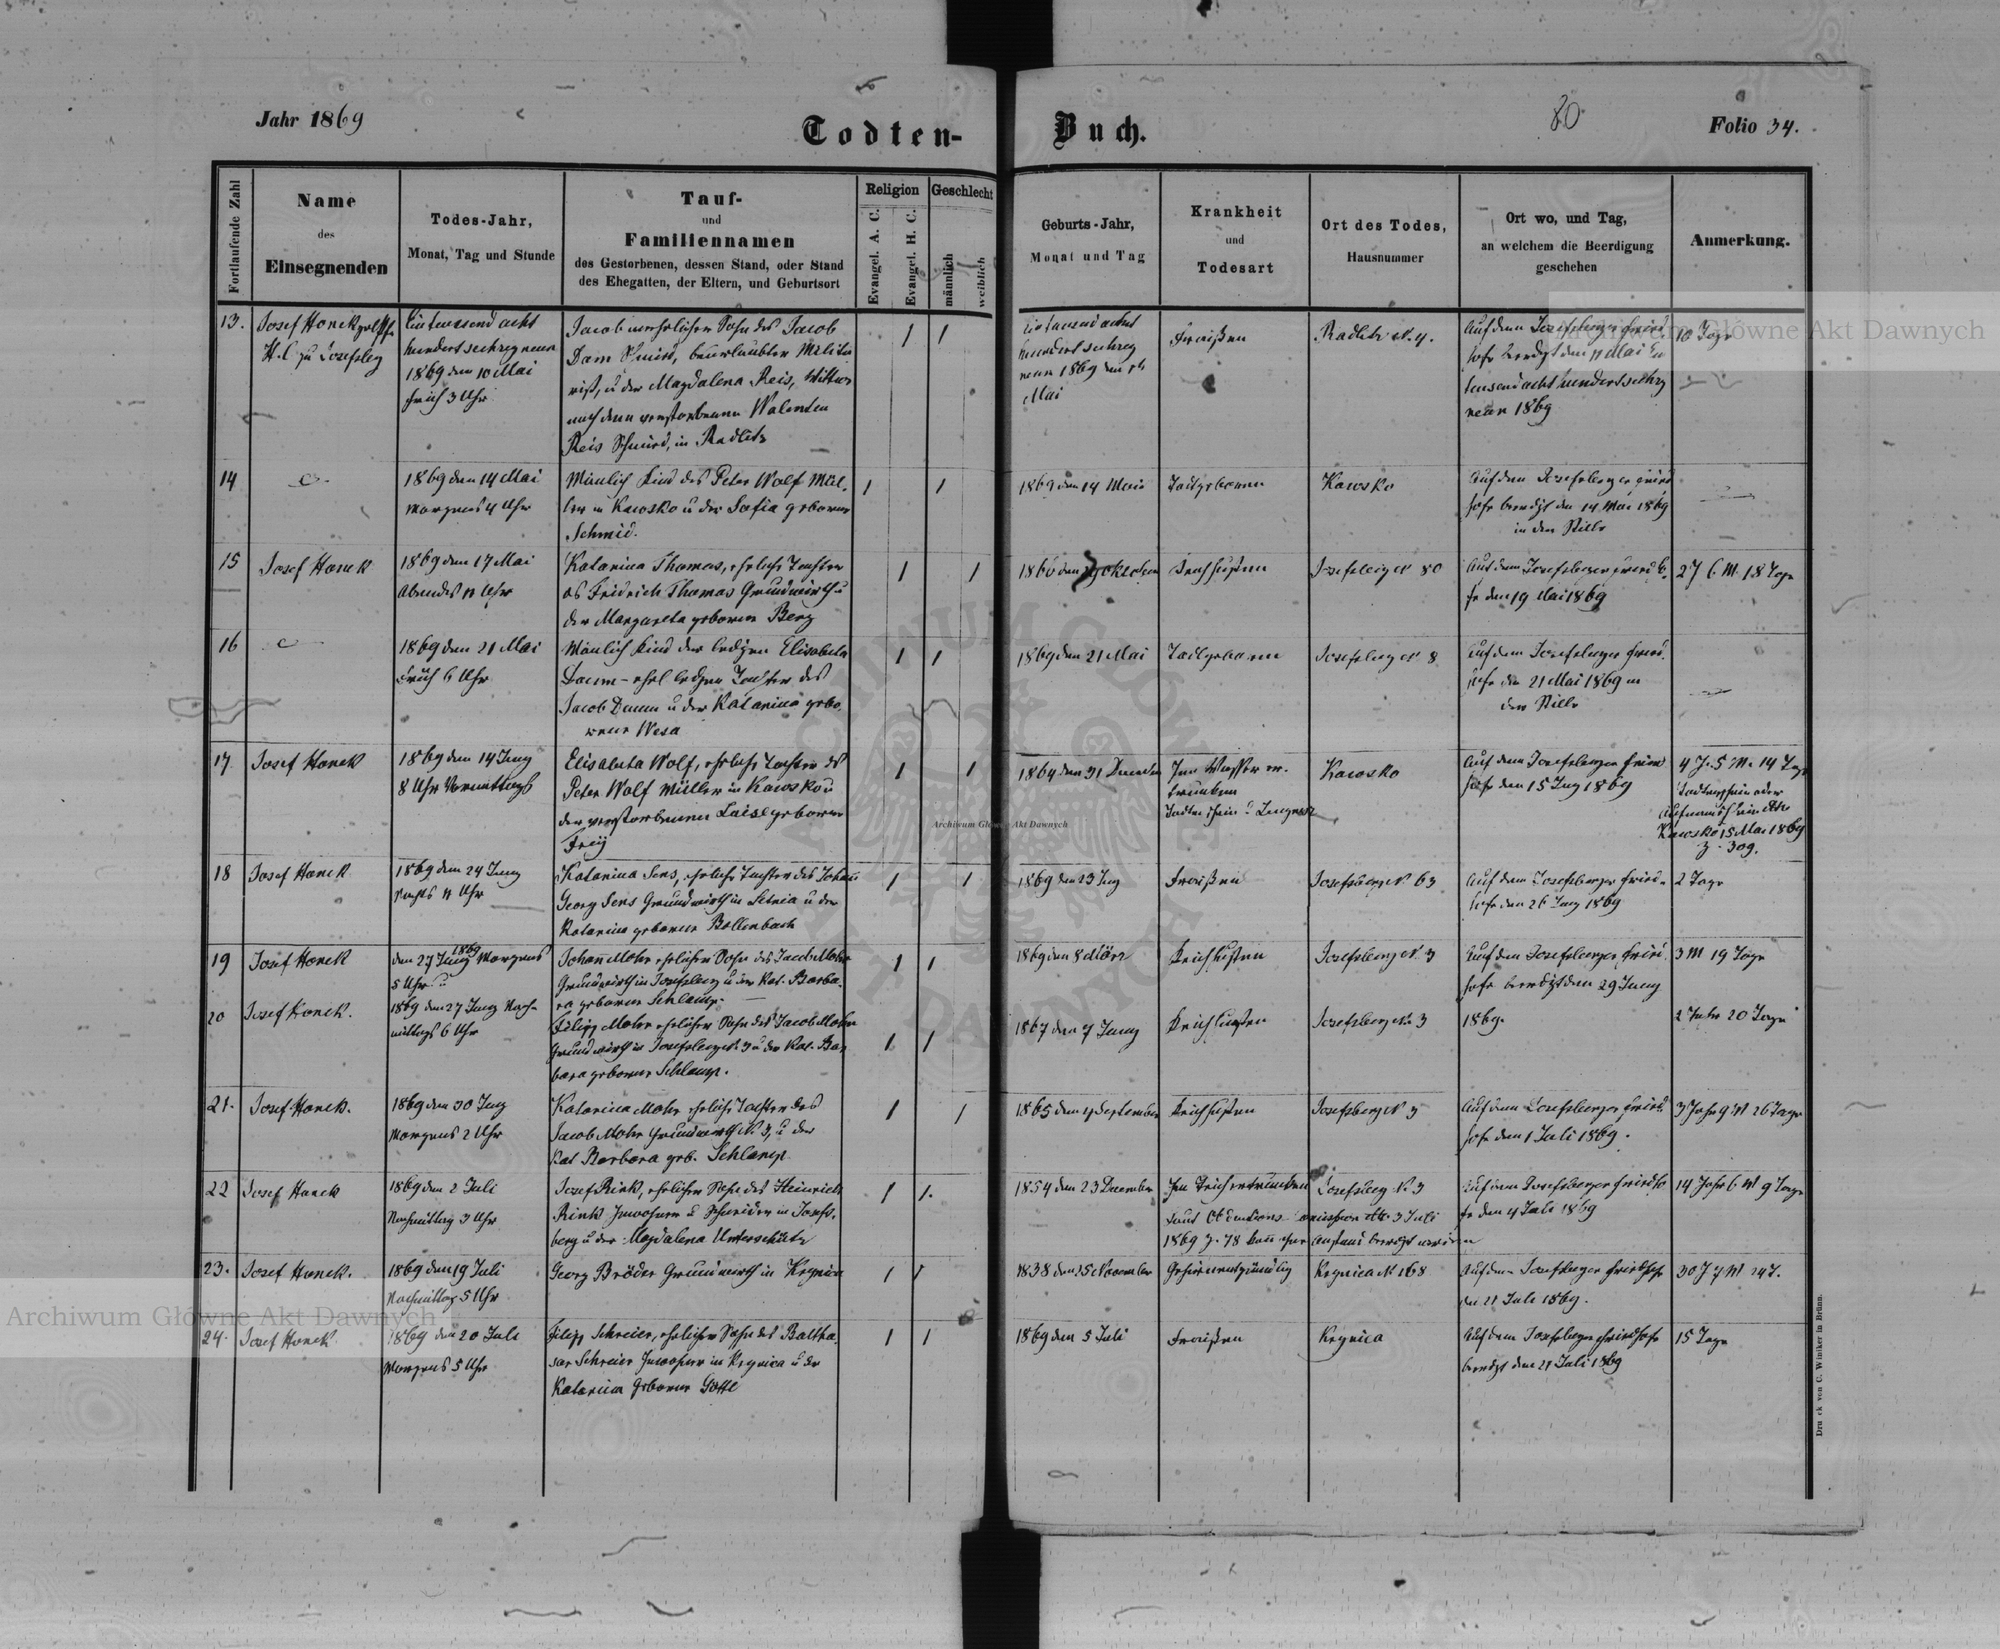 Jahr 1869
Todten-
Buch.
80
Folio 34.
Fortlaufende Zahl
Name
des
Einsegnenden
Todes-Jahr,
Monat, Tag und Stunde
Tauf-
und
Familiennamen
des Gestorbenen, dessen Stand, oder Stand
des Ehegatten, der Eltern, und Geburtsort
Religion
Evangel. A. C.
Evangel. H. C.
Geschlecht
männlich
weiblich
Geburts-Jahr,
Monat und Tag
Krankheit
und
Todesart
Ort des Todes,
Hausnummer
Ort wo, und Tag,
an welchem die Beerdigung
geschehen
Anmerkung.
13.
Josef Hanek
H.C zu Josefsberg
Eintausend acht
hundert sechzig neun
1869 den 10 Mai
früh 3 Uhr
Jacob unehelicher Sohn des Jacob
Dam Schmid, beurlaubter Militä
rist, u der Magdalena Reis, Wittwe
nach dem verstorbenen Walenten
Reis Schmied, in Radlitz
1 1
Eintausend acht
hundert sechzig
neun 1869 den
Mai
Fraißen
Radlitz N. 4.
Auf dem Josefsberger Fried
hofe beerdigt den 11 Mai Ein
tausend acht hundert sechzig
neun 1869
10 Tage
14
1869 den 14 Mai
morgens 4 Uhr
Mänlich Kind des Peter Wolf Mül-
ler in Kawsko u der Sofia geborene
Schmid.
1 1
1869 den 14 Mai
Todtgeboren
Kawsko
Auf dem Josefsberger Fried
hofe beerdigt den 14 Mai 1869
in der Stille
15
Josef Hanek
1869 den 17 Mai
Abends 11 Uhr
Katarina Thomas, eheliche Tochter
des Fridrich Thomas Grundwirth u
der Margareta geborene Berg
1 1
Oktober
Keichhusten
Josefsberg N 80
Auf dem Josefsberger Friedh.
fe den 19 Mai 1869
2 J 6 M. 18 Tage
16
1869 den 21 Mai
früh 6 Uhr
Mänlich Kind der ledigen Elisabeta
Daum – ehel ledgen Tochter des
Jacob Daum u der Katarina gebo
rene Wesa
1 1
1869 den 21 Mai
Todtgeboren
Josefsberg N 8
Auf dem Josefsberger Fried.
hofe den 21 Mai 1869 in
der Stille
17
Josef Hanek
1869 den 14 Juny
8 Uhr Vormittags
Elisabeta Wolf, eheliche Tochter des
Peter Wolf Müller in Kawsko u
der verstorbenen Luise geborene
Frey
1 1
1864 den 31 Dezember
Im Wasser er-
trunken
Kawsko
Auf dem Josefsberger Fried
hofe den 15 Juny 1869
4 J. 5 M. 14 Tage
Kawsko 15 Mai 1869
Z. 309.
18
Josef Hanek
1869 den 24 Juny
nachts 11 Uhr
Katarina Sens, eheliche Tochter des Johan
Georg Sens Grundwirth in Letnia u der
Katarina geborene Bollenbach
1 1
1869 den 23 Juny
Fraißen
Josefsberg N. 63
Auf dem Josefsberger Fried-
hofe den 26 Juny 1869
2 Tage
19
Josef Hanek
den 27 Juny 1869 Morgens
5 Uhr
Johan Mohr ehelicher Sohn des Jacob Mohr
Grundwirth in Josefsberg u der Kat. Barba.
ra geborene Schlamp.
1 1
1869 den 8 März
Keichhusten
Josefsberg N. 3
Auf dem Josefsberger Fried.
hofe beerdigt den 29 Juny
1869.
3 M 19 Tage
20
Josef Hanek.
1869 den 27 Juny Nach-
mittags 6 Uhr
Filipp Mohr ehelicher Sohn des Jacob Mohr
Grundwirth in Josefsberg N. 3 u der Kat. Bar
bara geborene Schlamp.
1 1
1867 den 7 Juny
Keichhusten
Josefsberg N. 3
2 Jahr 20 Tage
21.
Josef Hanek.
1869 den 30 Juny
Morgens 2 Uhr
Katarina Mohr eheliche Tochter des
Jacob Mohr Grundwirth N. 3, u der
Kat Barbara geb. Schlamp.
1 1
1865 den 4 September
Keichhusten
Josefsberg N 3
Auf dem Josefsberger Fried.
hofe den 1 Juli 1869.
3 Jahr 9 M 26 Tage
22
Josef Hanek
1869 den 2 Juli
Nachmittag 3 Uhr
Josef Rink, ehelicher Sohn des Heinrich
Rink Inwohner u Schneider in Josefs.
berg u der Magdalena Unterschütz
1 1.
1854 den 23 Dezember
Im Teich ertrunken
Josefsberg N. 3
3 Juli
1869 Z. 78 kann ohne Anstand beerdigt werden
Auf dem Josefsberger Friedho
fe den 4 Juli 1869
14 Jahr 6 M 9 Tage
23.
Josef Hanek.
1869 den 19 Juli
Nachmittag 5 Uhr
Georg Bröder Grundwirth in Krynica
1 1
1838 den 25 November
Gehirnentzündung
Krynica N 168
Auf dem Josefsberger Friedhofe
den 21 Juli 1869.
30 J 7 M 24 T.
24.
Josef Hanek.
1869 den 20 Juli
Morgens 5 Uhr
Filipp Schreier, ehelicher Sohn des Baltha.
sar Schreier Inwohner in Krynica u der
Katarina geborene Gottl
1 1
1869 den 5 Juli
Fraißen
Krynica
Auf dem Josefsberger Friedhofe
beerdigt den 21 Juli 1869
15 Tage
Druck von C. Winiker in Brünn.
Archiwum Główne Akt Dawnych
Archiwum Główne Akt Dawnych
Archiwum Główne Akt Dawnych
ARCHIWUM GŁÓWNE AKT DAWNYCH